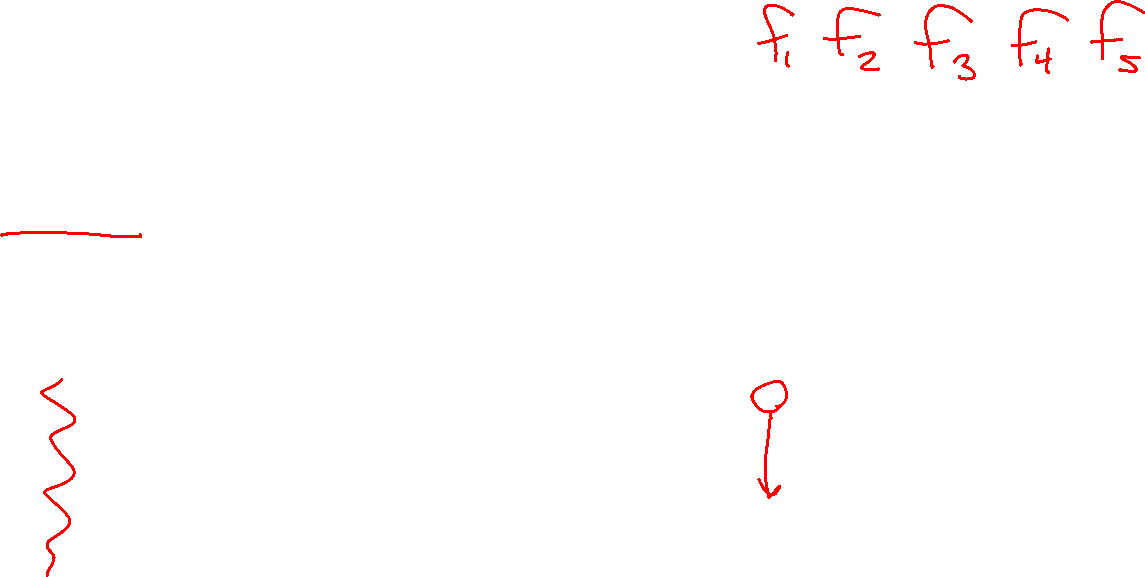 f₁ f₂ f₃ f₄ f₅